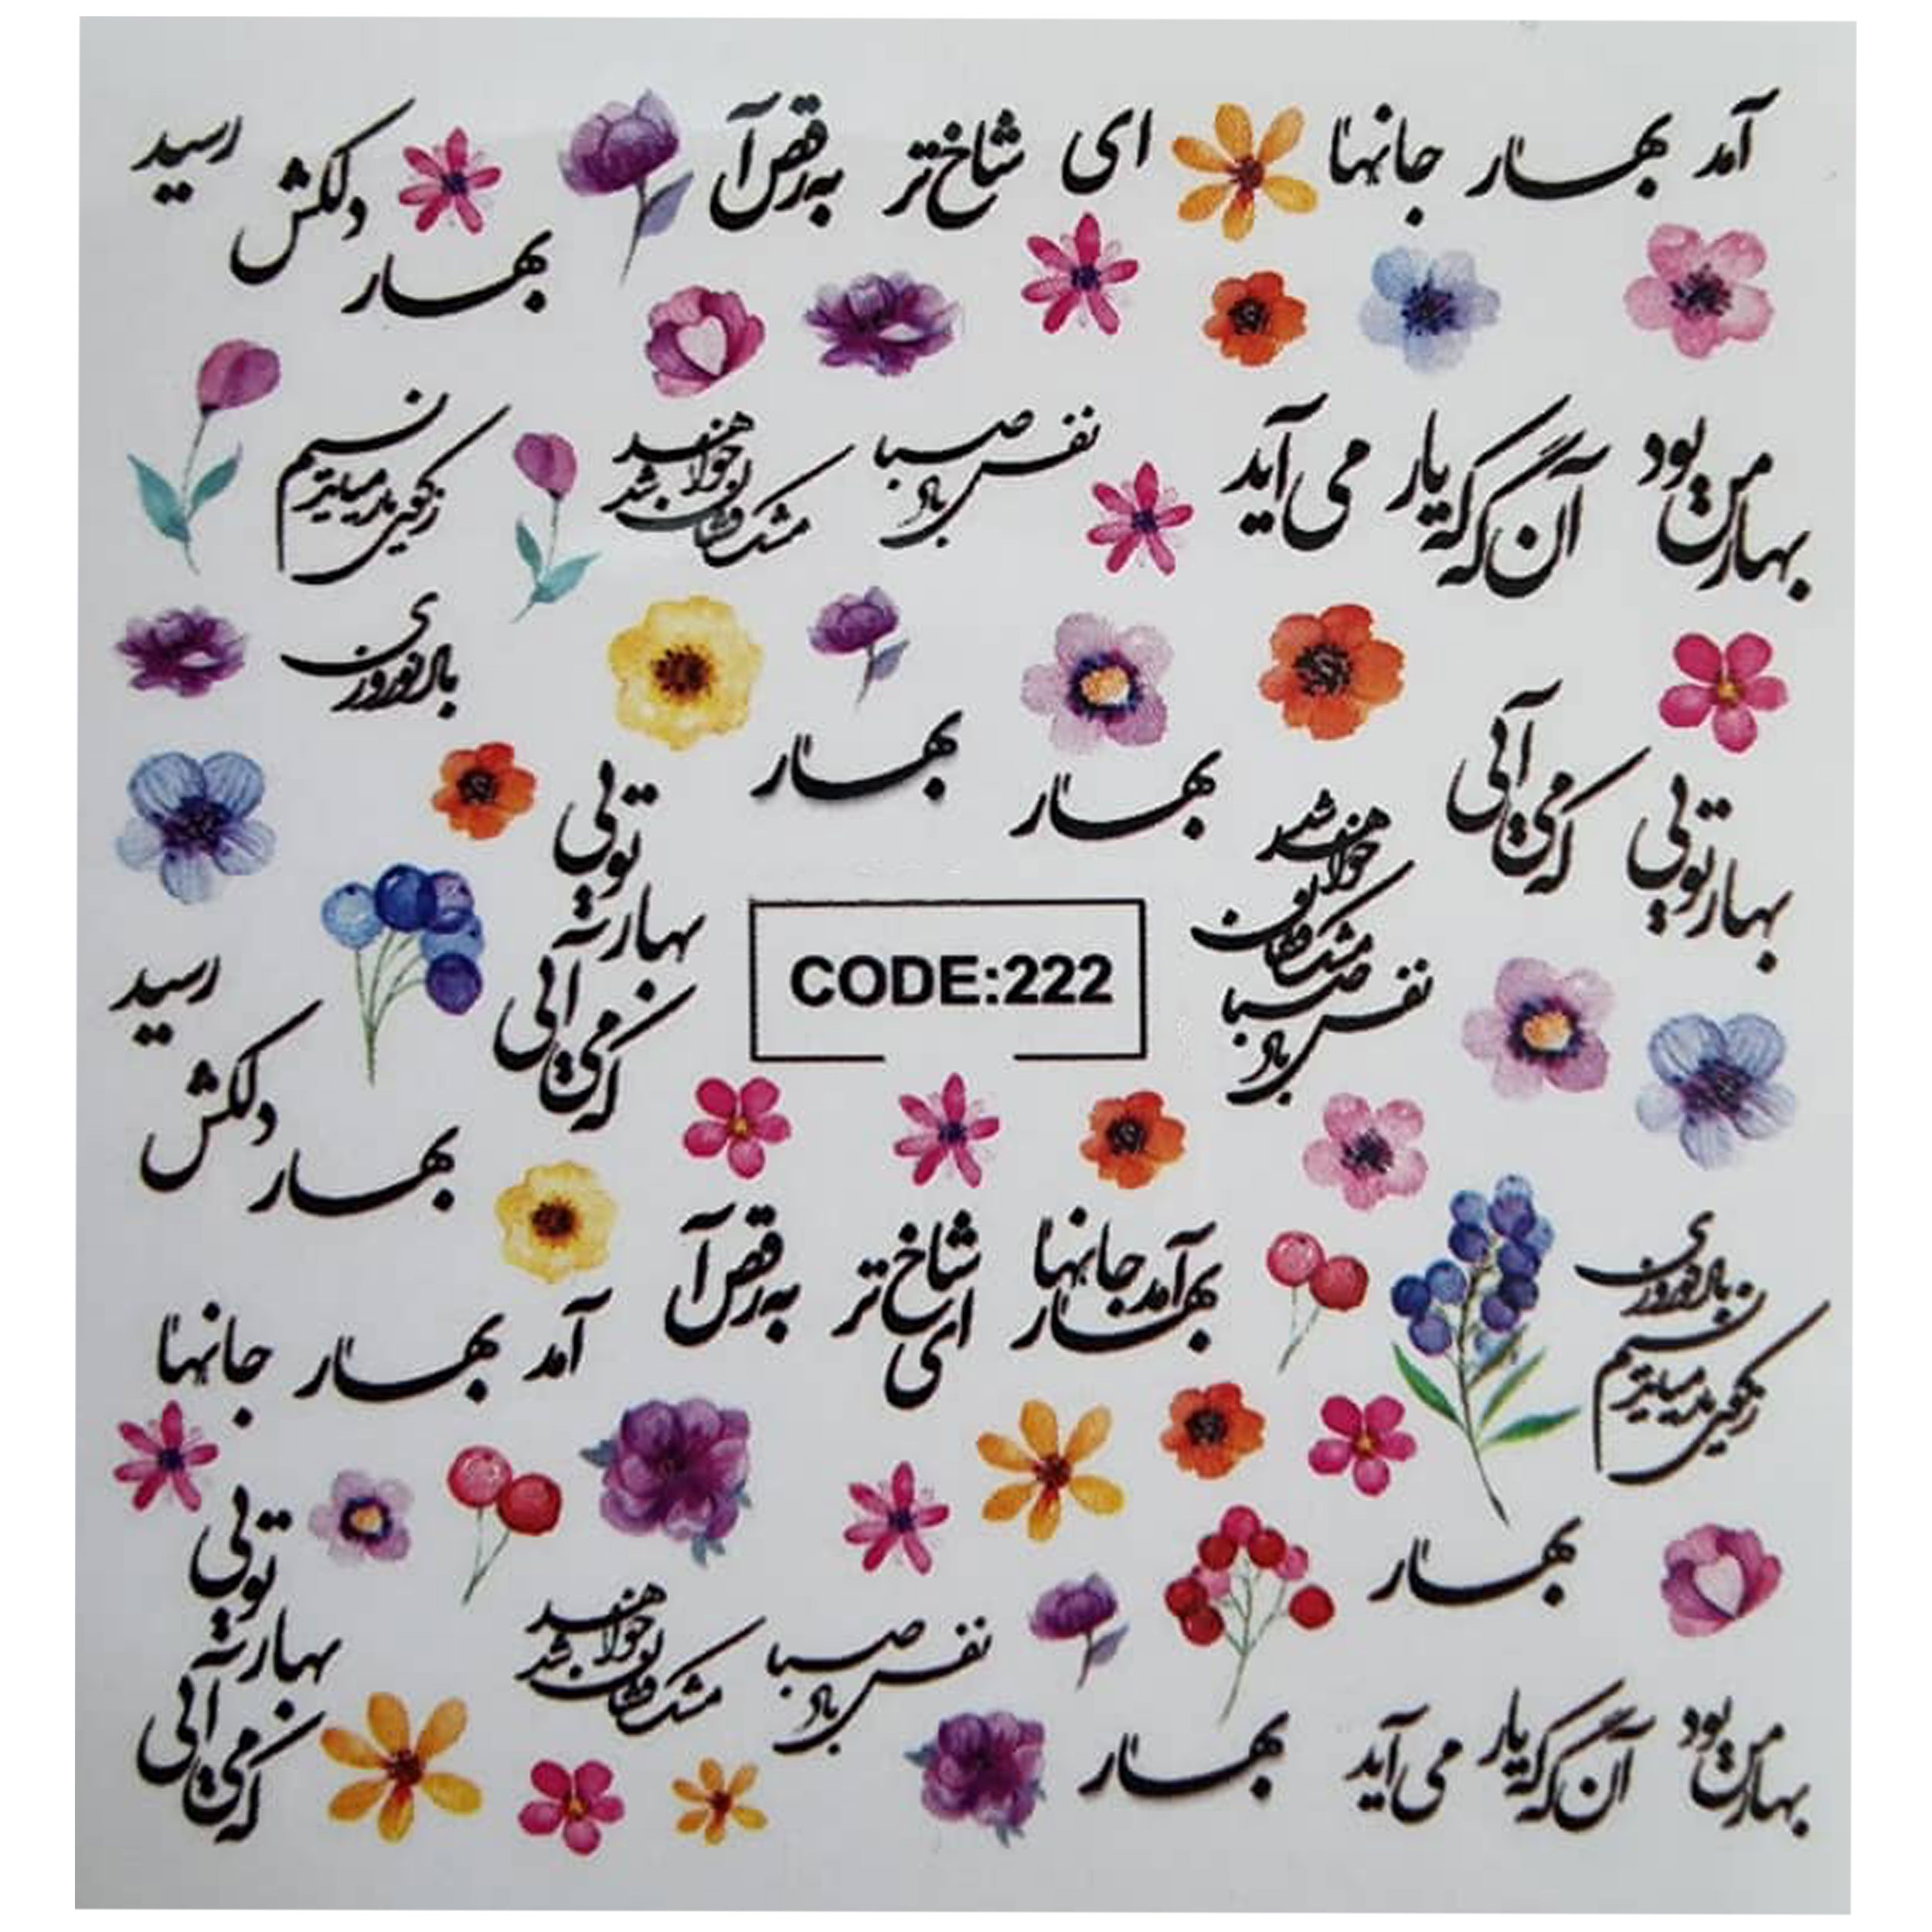 آمد بهار جانها ای شاخ تر به رقص آ
بهار دلکش رسید
بهار من بود آن گه که یار می آید
نفس باد صبا مشک فشان خواهد شد
نسیم
باد نوروزی
بهار
بهار
بهار تویی که می آئی
تویی بهار که می آئی
نفس باد صبا مشک فشان خواهد شد
CODE:222
بهار دلکش رسید
بهار آمد جانها ای شاخ تر به رقص آ
باد نوروزی
نسیم
آمد بهار جانها
بهار
تویی بهار که می آئی
نفس باد صبا مشک فشان خواهد شد
بهار
بهار من بود آن گه که یار می آید